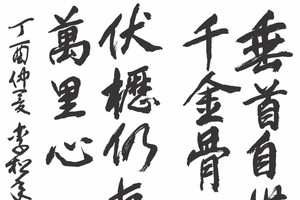 垂首自
千金骨
伏櫪仍
萬里心
丁酉仲夏李松